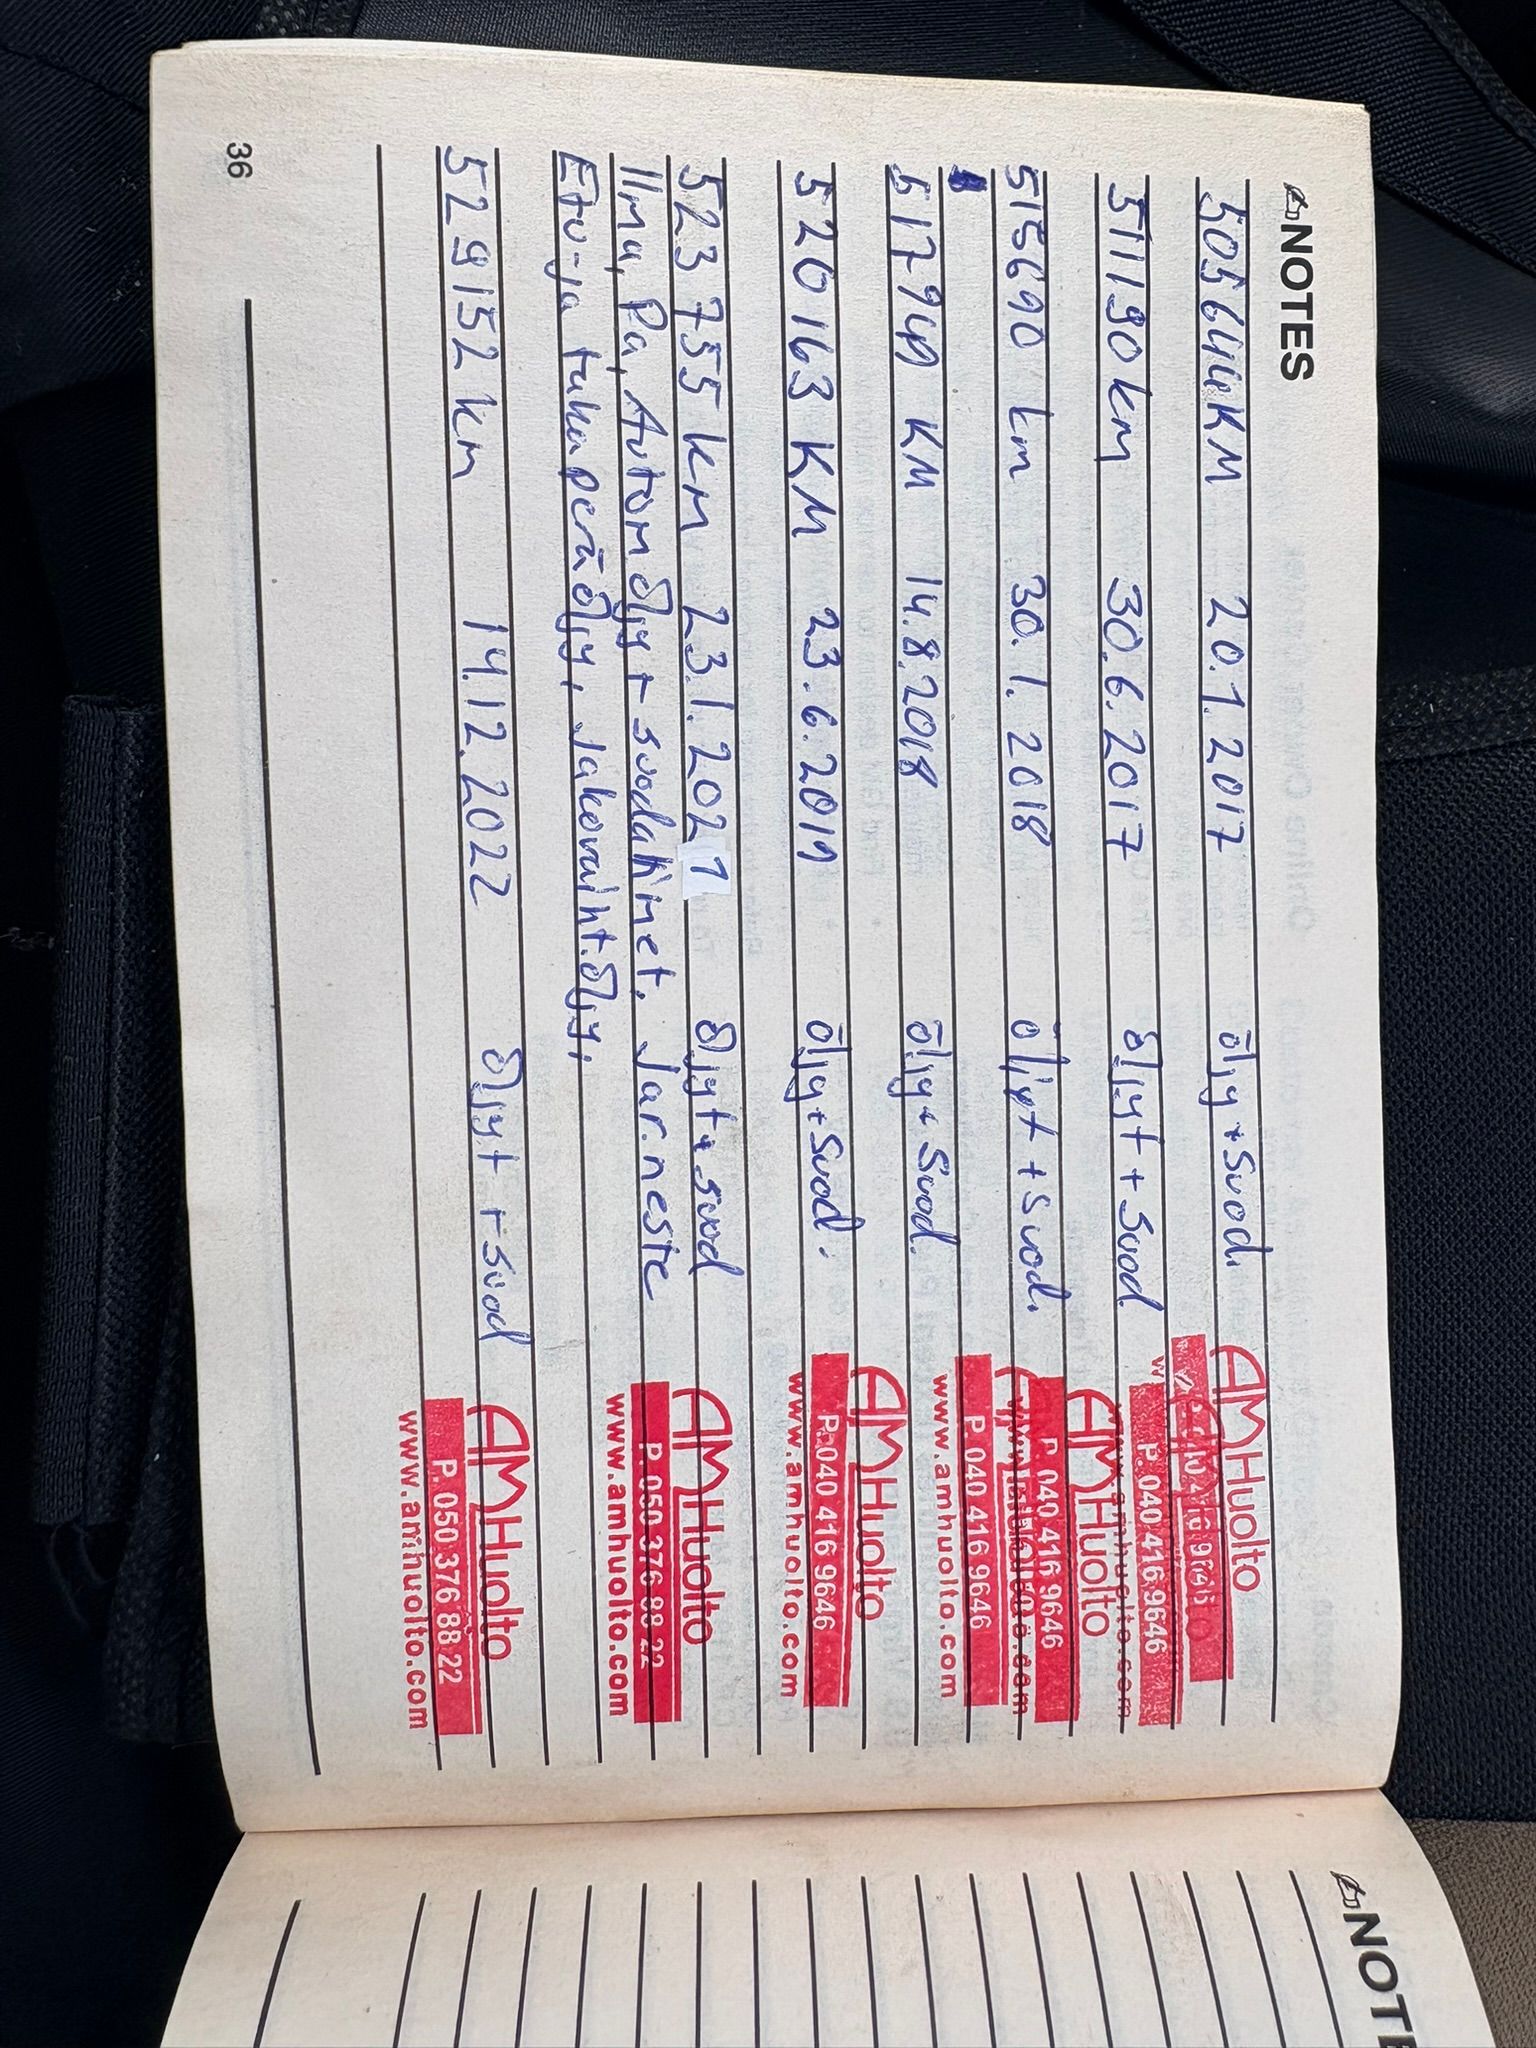 NOTES
505644KM 20.1.2017 öljy+Suod.
AMHuolto
511190km 30.6.2017 öljyt+suod.
P. 040 416 9646
www.amhuolto.com
515690 km 30.1.2018 öljyt+Suod.
AMHuolto
P. 040 416 9646
517949 KM 14.8.2018 öljy+Suod.
P. 040 416 9646
www.amhuolto.com
520163 KM 23.6.2019 öljy+Suod.
AMHuolto
P. 040 416 9646
www.amhuolto.com
523755 km 23.1.2021 öljyt+suod
AMHuolto
Ilma, Pa, Autom öljy+suodattimet. Jar.neste
P. 050 376 88 22
www.amhuolto.com
Etu-ja takaperäöljy, Jakovaiht.öljy,
529152 km 14.12.2022 öljyt+suod
AMHuolto
P. 050 376 88 22
www.amhuolto.com
36
NOTE